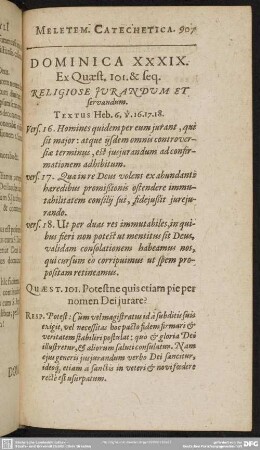 MELETEM. CATECHETICA. 907
DOMINICA XXXIX.
Ex Quæst. 101. & seq.
RELIGIOSE JURANDUM ET
servandum.
TEXTUS Heb. 6, v. 16. 17. 18.
Vers. 16. Homines quidem per eum jurant, qui
sit major: atque iisdem omnis controver-
siæ terminus, est jusjurandum ad confir-
mationem adhibitum.
vers. 17. Qua in re Deus volent ex abundanti
hæredibus promissionis ostendere immu-
tabilitatem consilij sui, fidejussit jureju-
rando.
vers. 18. Ut per duas res immutabiles, in qui-
bus fieri non potest ut mentitus sit Deus,
validam consolationem habeamus nos,
qui cursum eo corripuimus ut spem propo-
sitam retineamus.
QUÆST. 101. Potestne quis etiam pie per
nomen Dei jurare?
RESP. Potest: Cùm vel magistratus id à subditis suis
exigit, vel necessitas hoc pacto fidem firmari &
veritatem stabiliri postulat; quo & gloria Dei
illustretur, & aliorum saluti consulatur. Nam
ejus generis jusjurandum verbo Dei sancitur,
ideoq; etiam à sanctis in veteri & novo fœdere
rectè est usurpatum.